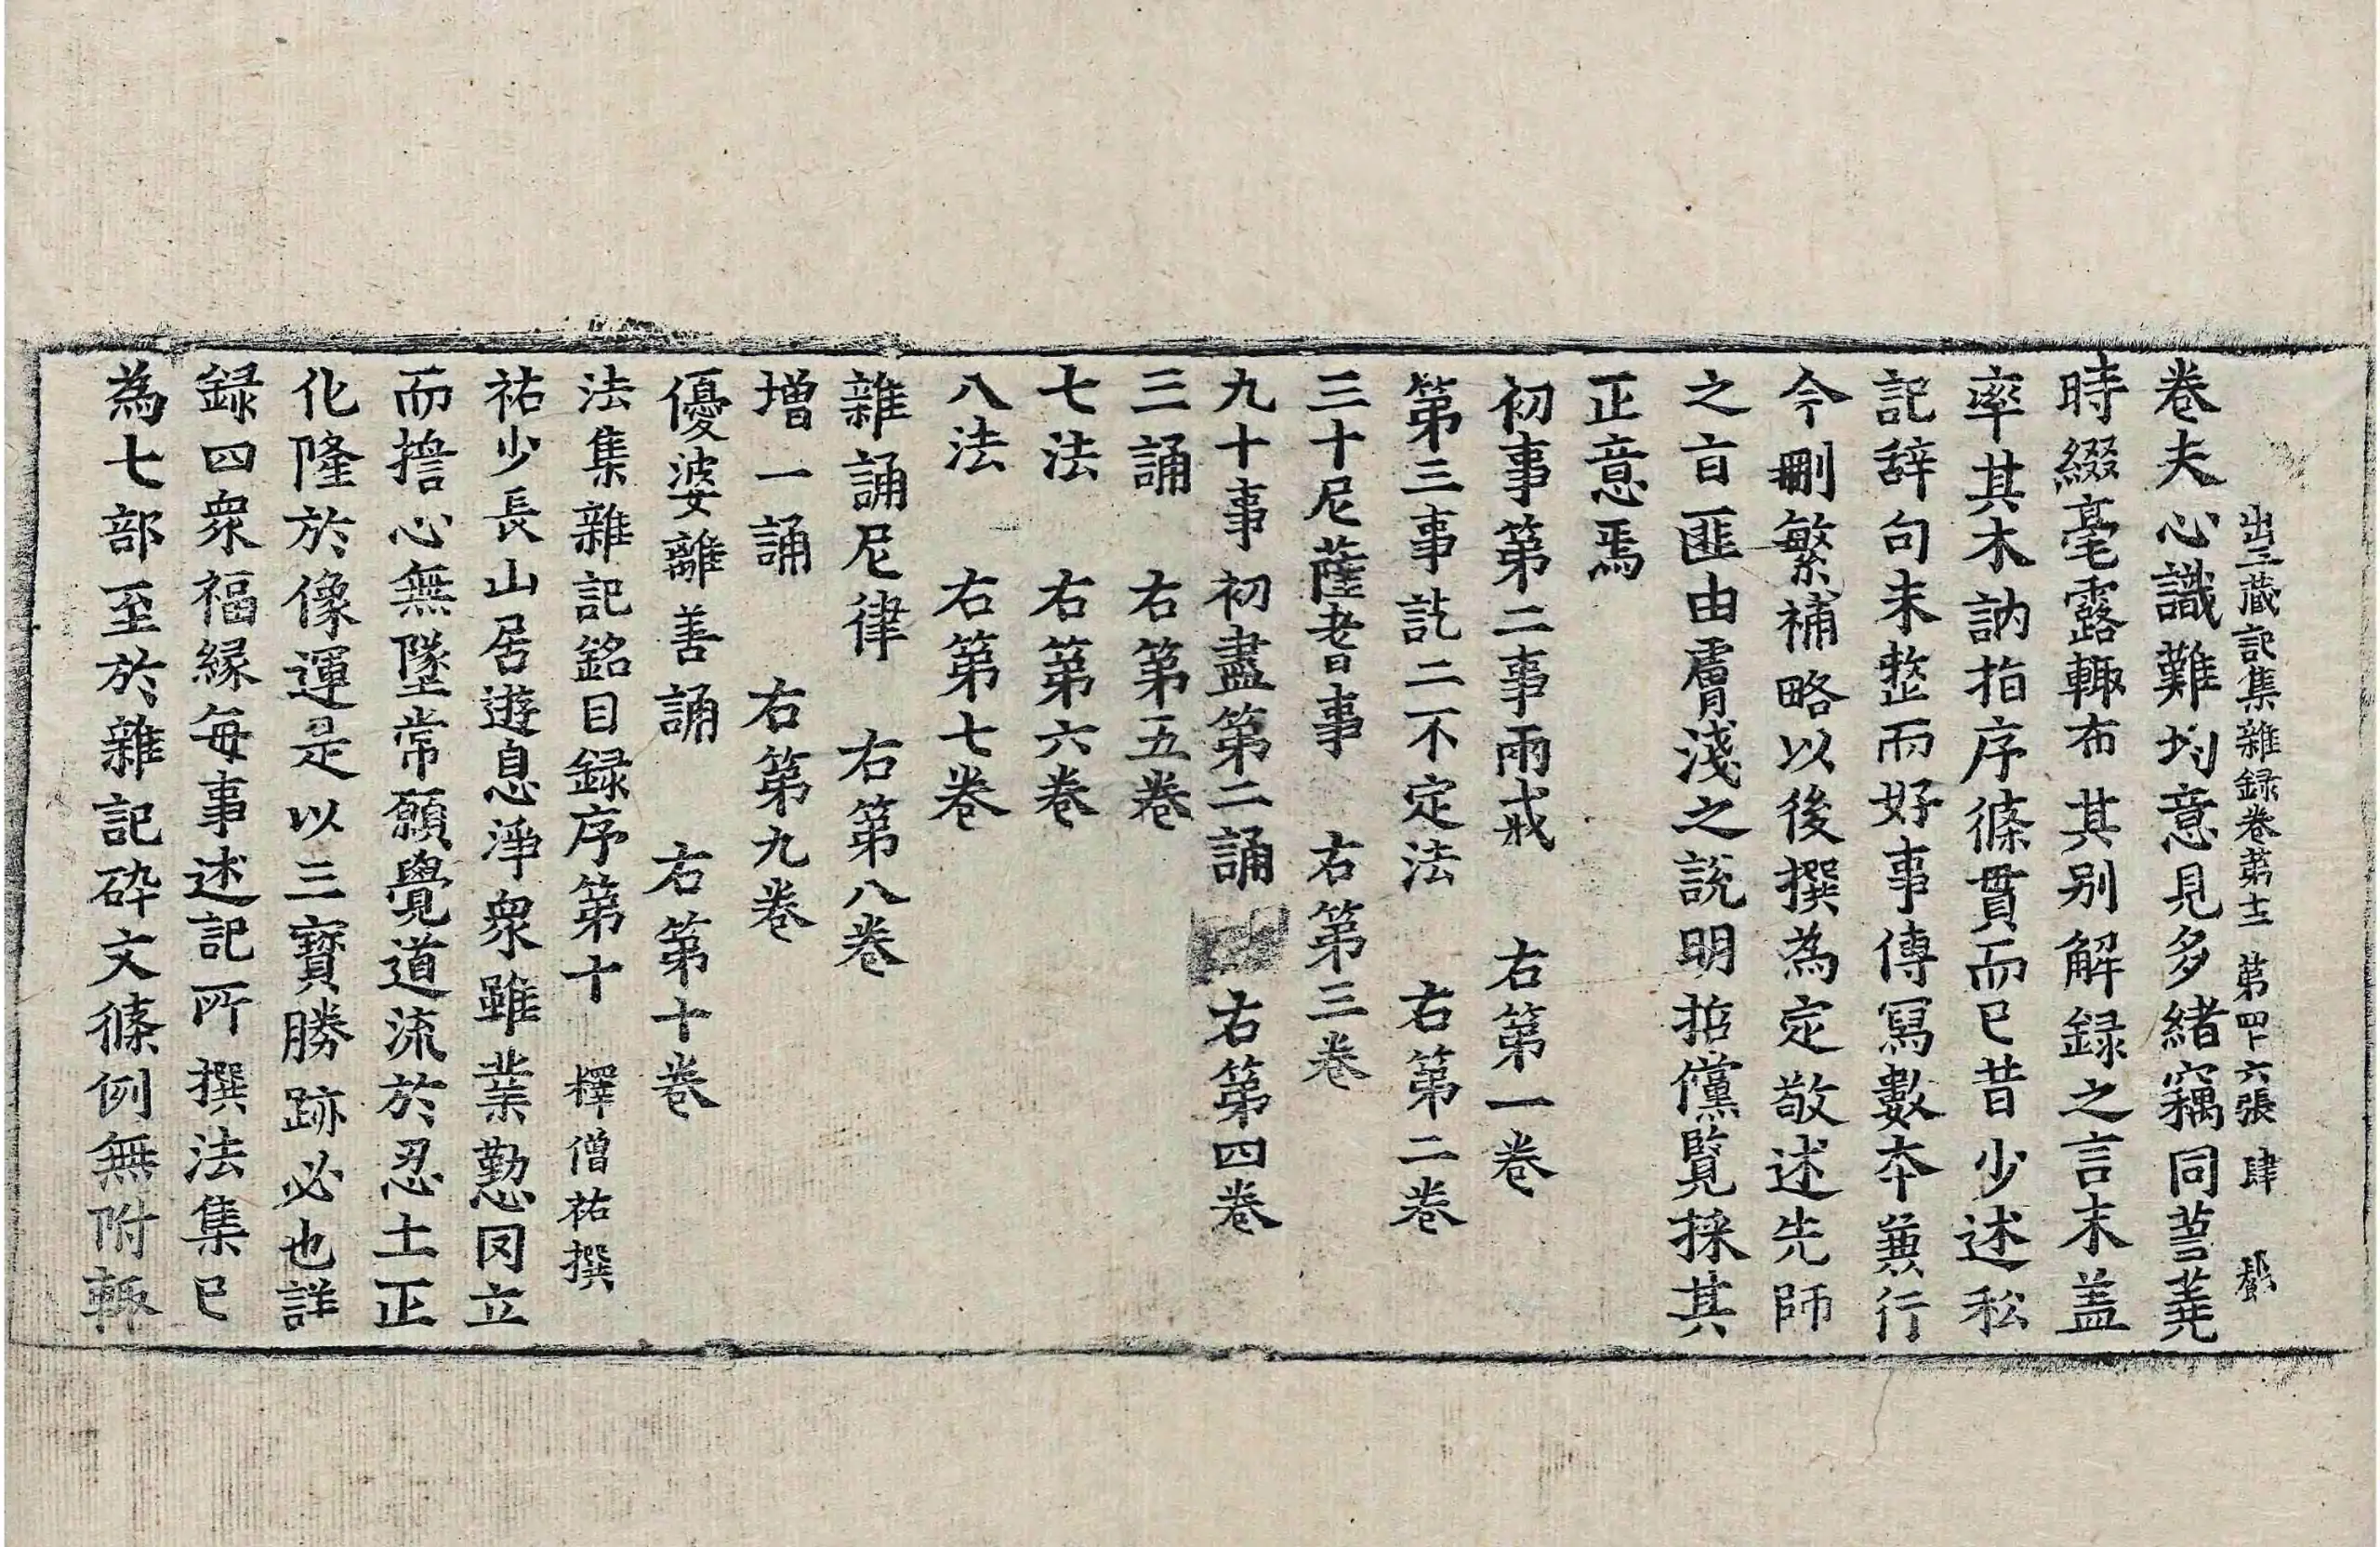 出三藏記集雜録卷第十二 第四十六張 肆
卷夫心識難均意見多緒竊同蒭蕘
時綴毫露輙布其别解録之言末盖
率其木訥指序條貫而已昔少述私
記辞句未整而好事傳寫數本兼行
今刪繁補略以後撰為定敬述先師
之旨匪由膚淺之說明掂儻覽採其
正意焉
初事第二事兩戒 右第一卷
第三事訖二不定法 右第二卷
三十尼薩耆事 右第三卷
九十事初盡第二誦 右第四卷
三誦 右第五卷
七法 右第六卷
八法 右第七卷
雜誦尼律 右第八卷
增一誦 右第九卷
優婆離善誦 右第十卷
法集雜記銘目録序第十 釋僧祐撰
祐少長山居遊息淨衆雖業勤罔立
而擔心無墜常願覺道流於忍土正
化隆於像運是以三寶勝跡必也詳
録四衆福緣每事述記所撰法集已
為七部至於雜記碎文條例無附輙